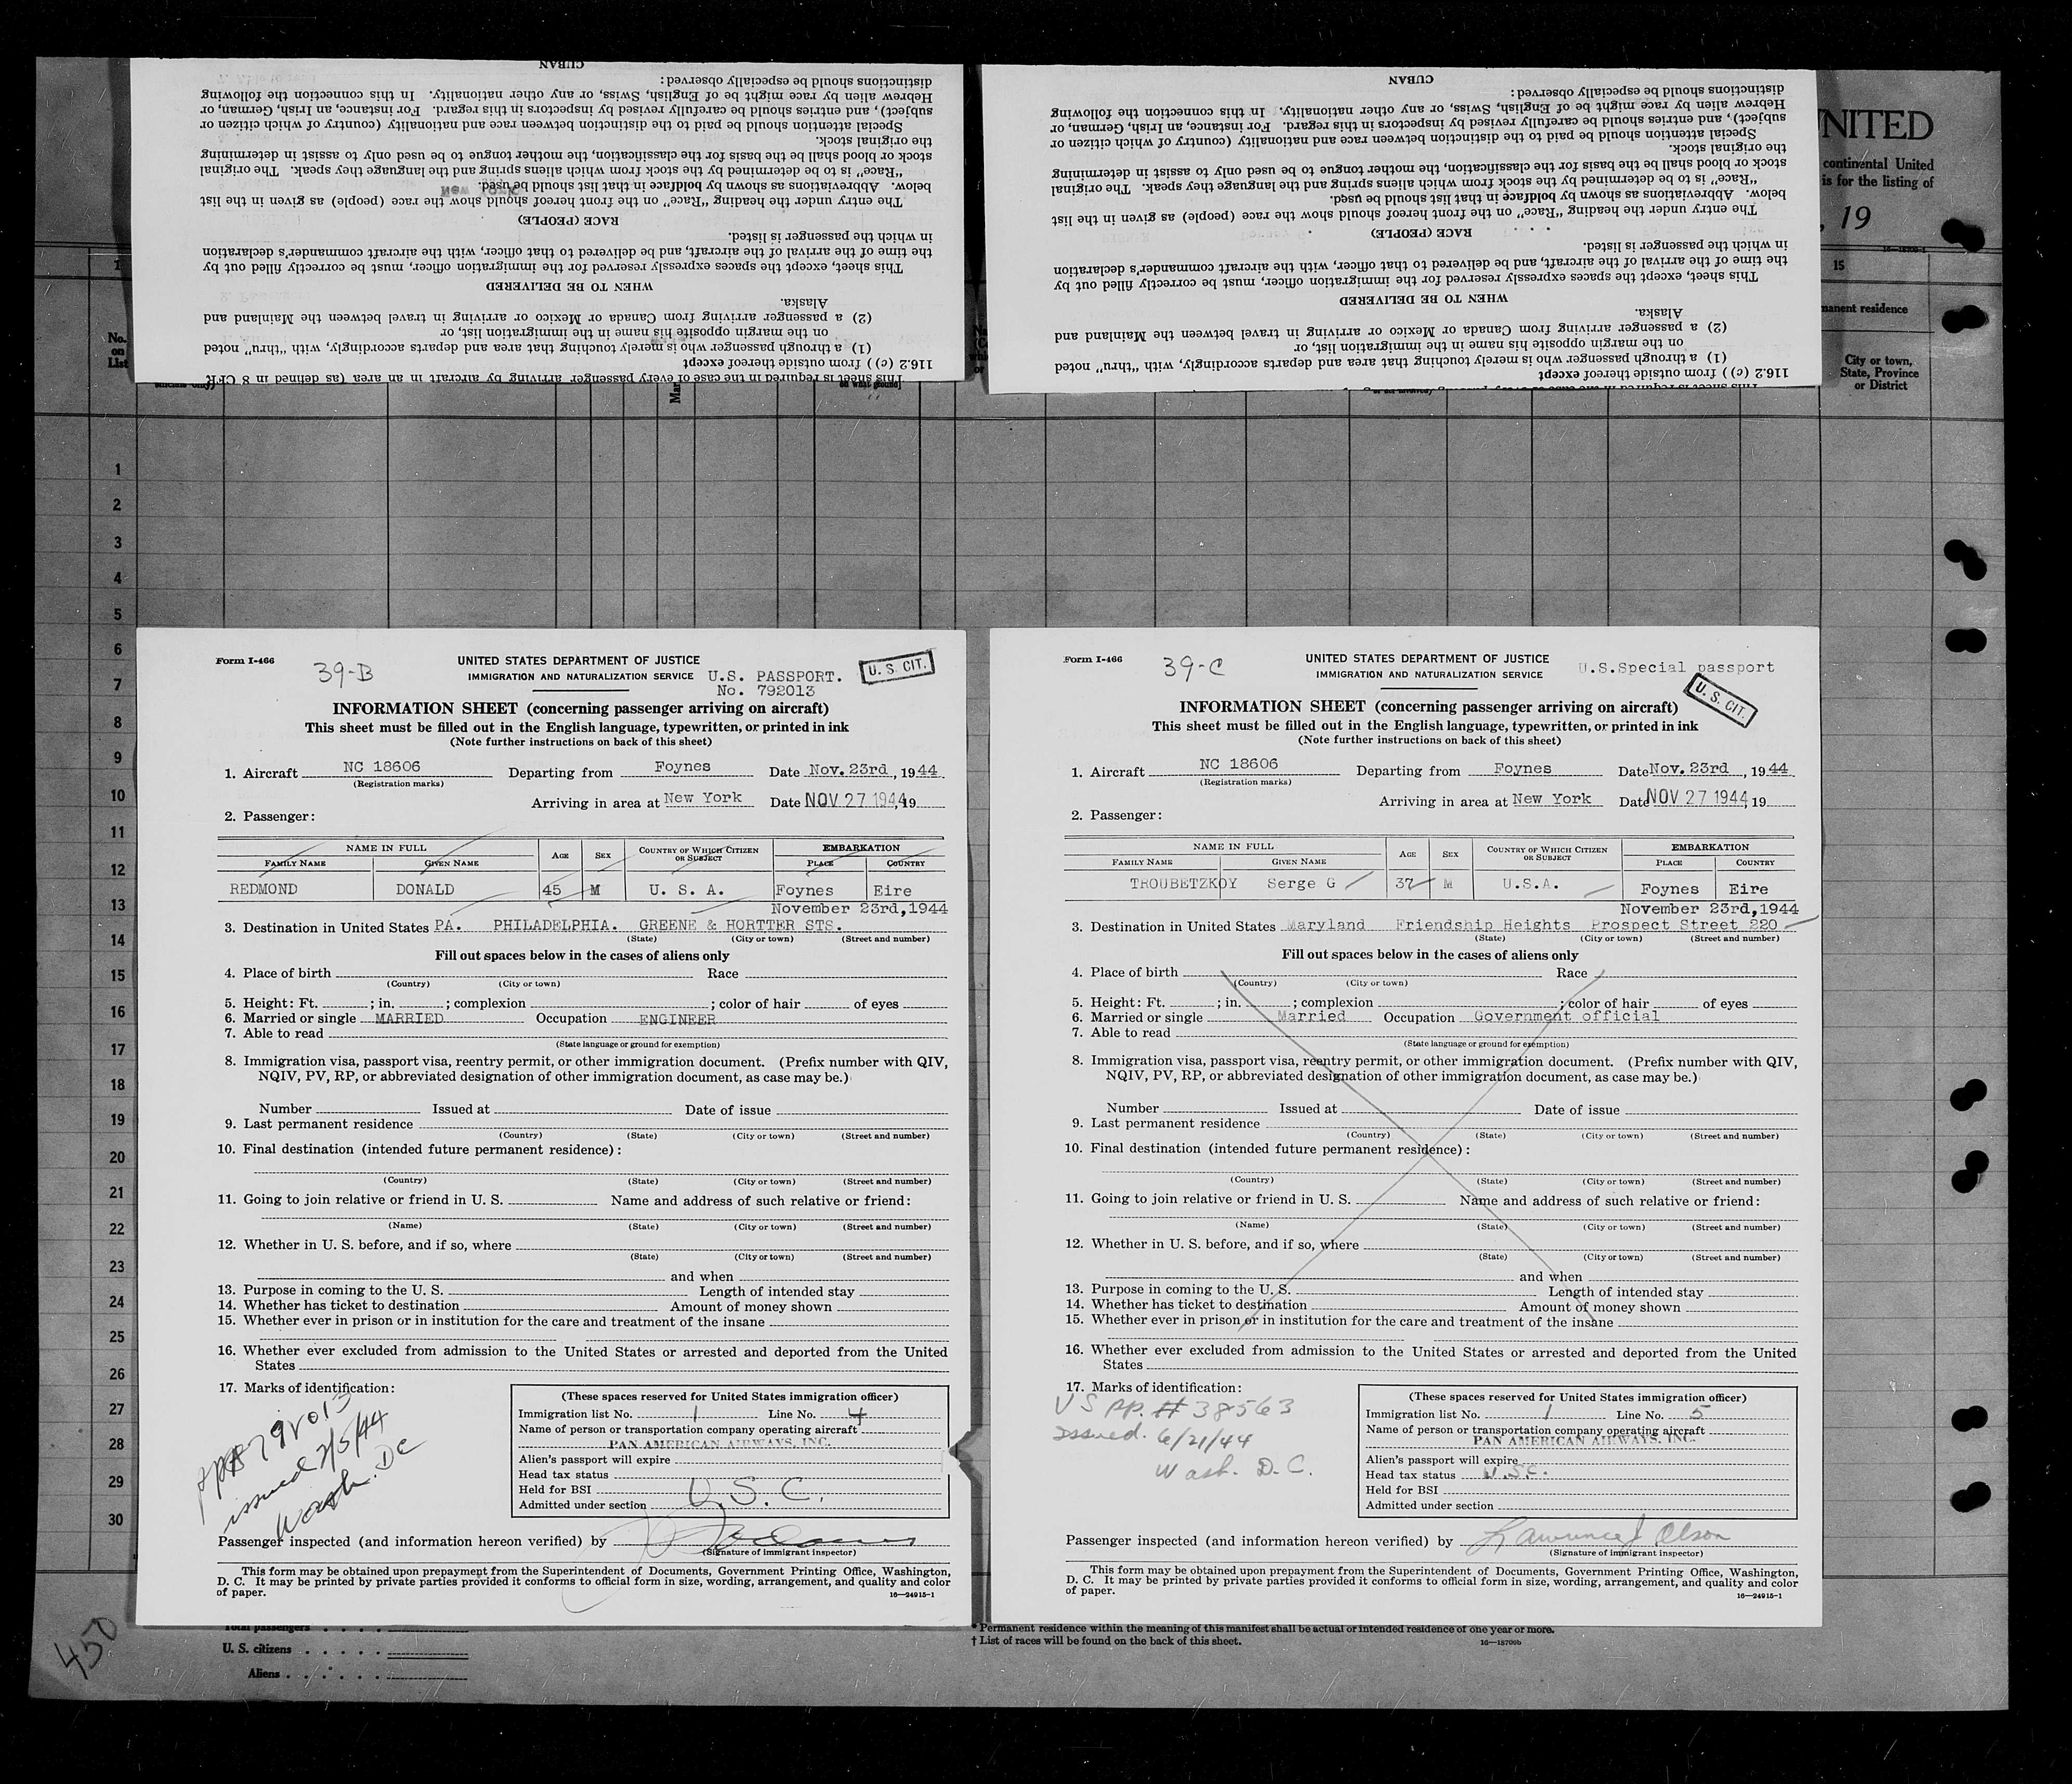 CUBAN
distinctions should be especially observed:
Hebrew alien by race might be of English, Swiss, or any other nationality. In this connection the following
subject), and entries should be carefully revised by inspectors in this regard. For instance, an Irish, German, or
Special attention should be paid to the distinction between race and nationality (country of which citizen or
the original stock.
stock or blood shall be the basis for the classification, the mother tongue to be used only to assist in determining
"Race" is to be determined by the stock from which aliens spring and the language they speak. The original
below. Abbreviations as shown by boldface in that list should be used.
New York
The entry under the heading "Race" on the front hereof should show the race (people) as given in the list
RACE (PEOPLE)
in which the passenger is listed.
the time of the arrival of the aircraft, and be delivered to that officer, with the aircraft commander's declaration
This sheet, except the spaces expressly reserved for the immigration officer, must be correctly filled out by
WHEN TO BE DELIVERED
Alaska.
(2) a passenger arriving from Canada or Mexico or arriving in travel between the Mainland and
on the margin opposite his name in the immigration list, or
(1) a through passenger who is merely touching that area and departs accordingly, with "thru" noted
116.2 (c) ) from outside thereof except
This sheet is required in the case of every passenger arriving by aircraft in an area (as defined in 8 CFR
CUBAN
distinctions should be especially observed:
Hebrew alien by race might be of English, Swiss, or any other nationality. In this connection the following
subject), and entries should be carefully revised by inspectors in this regard. For instance, an Irish, German, or
Special attention should be paid to the distinction between race and nationality (country of which citizen or
the original stock.
stock or blood shall be the basis for the classification, the mother tongue to be used only to assist in determining
"Race" is to be determined by the stock from which aliens spring and the language they speak. The original
below. Abbreviations as shown by boldface in that list should be used.
The entry under the heading "Race" on the front hereof should show the race (people) as given in the list
RACE (PEOPLE)
in which the passenger is listed.
the time of the arrival of the aircraft, and be delivered to that officer, with the aircraft commander's declaration
This sheet, except the spaces expressly reserved for the immigration officer, must be correctly filled out by
WHEN TO BE DELIVERED
Alaska.
(2) a passenger arriving from Canada or Mexico or arriving in travel between the Mainland and
on the margin opposite his name in the immigration list, or
(1) a through passenger who is merely touching that area and departs accordingly, with "thru" noted
116.2 (c) ) from outside thereof except
NITED
continental United
is for the listing of
, 19
15
manent residence
City or town,
State, Province
or District
No.
on
List
1
2
3
4
5
6
7
8
9
10
11
12
13
14
15
16
17
18
19
20
21
22
23
24
25
26
27
28
29
30
Form I-466
39-B
UNITED STATES DEPARTMENT OF JUSTICE
IMMIGRATION AND NATURALIZATION SERVICE
U.S. PASSPORT.
No. 792013
U. S. CIT.
INFORMATION SHEET (concerning passenger arriving on aircraft)
This sheet must be filled out in the English language, typewritten, or printed in ink
(Note further instructions on back of this sheet)
1. Aircraft NC 18606 Departing from Foynes Date Nov. 23rd, 1944
(Registration marks)
Arriving in area at New York Date NOV 27 1944, 19
2. Passenger:
NAME IN FULL AGE SEX COUNTRY OF WHICH CITIZEN OR SUBJECT EMBARKATION
FAMILY NAME GIVEN NAME PLACE COUNTRY
REDMOND DONALD 45 M U. S. A. Foynes Eire
November 23rd,1944
3. Destination in United States PA. PHILADELPHIA. GREENE & HORTTER STS.
(State) (City or town) (Street and number)
Fill out spaces below in the cases of aliens only
4. Place of birth Race
(Country) (City or town)
5. Height: Ft. ; in. ; complexion ; color of hair of eyes
6. Married or single MARRIED Occupation ENGINEER
7. Able to read
(State language or ground for exemption)
8. Immigration visa, passport visa, reentry permit, or other immigration document. (Prefix number with QIV,
NQIV, PV, RP, or abbreviated designation of other immigration document, as case may be.)
Number Issued at Date of issue
9. Last permanent residence
(Country) (State) (City or town) (Street and number)
10. Final destination (intended future permanent residence):
(Country) (State) (City or town) (Street and number)
11. Going to join relative or friend in U. S. Name and address of such relative or friend:
(Name) (State) (City or town) (Street and number)
12. Whether in U. S. before, and if so, where
(State) (City or town) (Street and number)
and when
13. Purpose in coming to the U. S. Length of intended stay
14. Whether has ticket to destination Amount of money shown
15. Whether ever in prison or in institution for the care and treatment of the insane
16. Whether ever excluded from admission to the United States or arrested and deported from the United
States
17. Marks of identification:
issued 7/5/44
Wash. DC
(These spaces reserved for United States immigration officer)
Immigration list No. 1 Line No. 4
Name of person or transportation company operating aircraft
PAN AMERICAN AIRWAYS, INC.
Alien's passport will expire
Head tax status
Held for BSI U. S. C.
Admitted under section
Passenger inspected (and information hereon verified) by
(Signature of immigrant inspector)
This form may be obtained upon prepayment from the Superintendent of Documents, Government Printing Office, Washington,
D. C. It may be printed by private parties provided it conforms to official form in size, wording, arrangement, and quality and color
of paper.
16—24915-1
Form I-466
39-C
UNITED STATES DEPARTMENT OF JUSTICE
IMMIGRATION AND NATURALIZATION SERVICE
U.S.Special passport
U. S. CIT.
INFORMATION SHEET (concerning passenger arriving on aircraft)
This sheet must be filled out in the English language, typewritten, or printed in ink
(Note further instructions on back of this sheet)
1. Aircraft NC 18606 Departing from Foynes Date Nov. 23rd, 1944
(Registration marks)
Arriving in area at New York Date NOV 27 1944, 19
2. Passenger:
NAME IN FULL AGE SEX COUNTRY OF WHICH CITIZEN OR SUBJECT EMBARKATION
FAMILY NAME GIVEN NAME PLACE COUNTRY
TROUBETZKOY Serge G 37 M U.S.A. Foynes Eire
November 23rd,1944
3. Destination in United States Maryland Friendship Heights Prospect Street 220
(State) (City or town) (Street and number)
Fill out spaces below in the cases of aliens only
4. Place of birth Race
(Country) (City or town)
5. Height: Ft. ; in. ; complexion ; color of hair of eyes
6. Married or single Married Occupation Government official
7. Able to read
(State language or ground for exemption)
8. Immigration visa, passport visa, reentry permit, or other immigration document. (Prefix number with QIV,
NQIV, PV, RP, or abbreviated designation of other immigration document, as case may be.)
Number Issued at Date of issue
9. Last permanent residence
(Country) (State) (City or town) (Street and number)
10. Final destination (intended future permanent residence):
(Country) (State) (City or town) (Street and number)
11. Going to join relative or friend in U. S. Name and address of such relative or friend:
(Name) (State) (City or town) (Street and number)
12. Whether in U. S. before, and if so, where
(State) (City or town) (Street and number)
and when
13. Purpose in coming to the U. S. Length of intended stay
14. Whether has ticket to destination Amount of money shown
15. Whether ever in prison or in institution for the care and treatment of the insane
16. Whether ever excluded from admission to the United States or arrested and deported from the United
States
17. Marks of identification:
US pp. # 38563
Issued. 6/21/44
Wash. D.C.
(These spaces reserved for United States immigration officer)
Immigration list No. 1 Line No. 5
Name of person or transportation company operating aircraft
PAN AMERICAN AIRWAYS, INC.
Alien's passport will expire
Head tax status U.S.C.
Held for BSI
Admitted under section
Passenger inspected (and information hereon verified) by Lawrence J Olson
(Signature of immigrant inspector)
This form may be obtained upon prepayment from the Superintendent of Documents, Government Printing Office, Washington,
D. C. It may be printed by private parties provided it conforms to official form in size, wording, arrangement, and quality and color
of paper.
16—24915-1
450
Total passengers
U. S. citizens
Aliens
* Permanent residence within the meaning of this manifest shall be actual or intended residence of one year or more.
† List of races will be found on the back of this sheet.
16—18709b